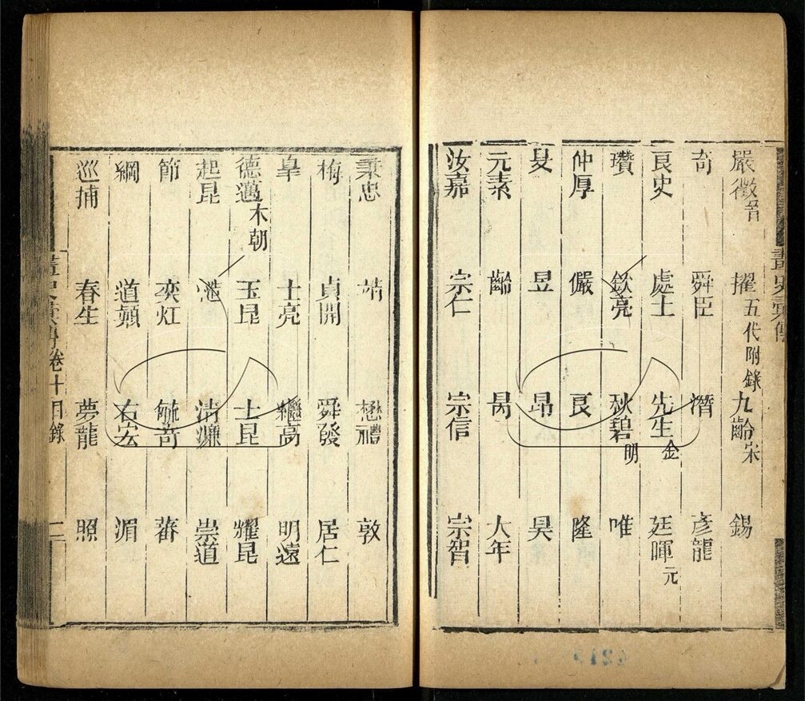 嚴徵晉 擢五代附錄 九齡宋 錫
奇 舜臣 潛 彥龍
良史 處士 先生金 廷暉元
瓚 欽亮 秋碧明 唯
仲厚 儼 良 隆
旻 昱 昂 昊
元素 齡 昺 大年
汝嘉 宗仁 宗信 宗智
秉忠 靖 懋禮 敦
梅 貞開 舜發 居仁
臯 士亮 繼高 明遠
德邁本朝 玉昆 士昆 耀昆
起昆 清濂 崇道
節 奕灴 毓苛 蕃
綱 道顥 右宏 湄
巡捕 春生 夢龍 照
畫史彙傳 卷十目錄 二